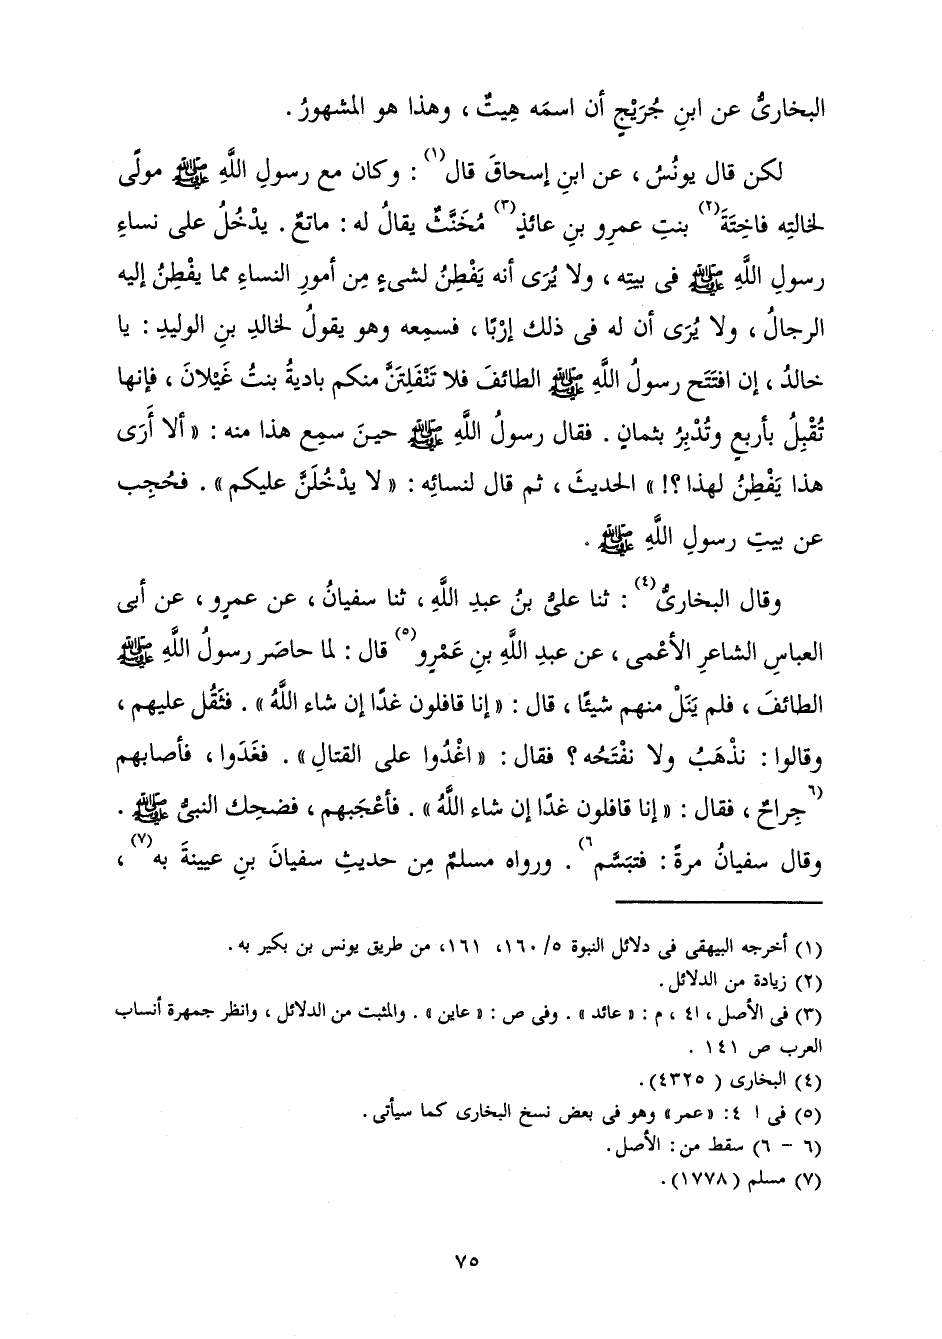 البخارىُّ عن ابنِ جُرَيْجٍ أن اسمَه هِيتٌ ، وهذا هو المشهورُ .
لكن قال يونُسُ ، عن ابنِ إسحاقَ قال(١) : وكان مع رسولِ اللَّهِ ﷺ مولًى
لخالتِه فاخِتَةَ(٢) بنتِ عمرِو بنِ عائذٍ(٣) مُخَنَّثٌ يقالُ له : ماتعٌ . يدْخُلُ على نساءِ
رسولِ اللَّهِ ﷺ فى بيتِه ، ولا يُرَى أنه يَفْطِنُ لشىءٍ مِن أمورِ النساءِ مما يفْطِنُ إليه
الرجالُ ، ولا يُرَى أن له فى ذلك إرْبًا ، فسمِعه وهو يقولُ لخالدِ بنِ الوليدِ : يا
خالدُ ، إن افتَتَح رسولُ اللَّهِ ﷺ الطائفَ فلا تَنْفَلِتَنَّ منكم باديةُ بنتُ غَيْلانَ ، فإنها
تُقْبِلُ بأربعٍ وتُدْبِرُ بثمانٍ . فقال رسولُ اللَّهِ ﷺ حينَ سمِع هذا منه : « ألا أَرَى
هذا يَفْطِنُ لهذا ؟! » الحديثَ ، ثم قال لنسائِه : « لا يدْخُلَنَّ عليكم » . فحُجِب
عن بيتِ رسولِ اللَّهِ ﷺ .
وقال البخارىُّ(٤) : ثنا علىُّ بنُ عبدِ اللَّهِ ، ثنا سفيانُ ، عن عمرٍو ، عن أبى
العباسِ الشاعرِ الأعْمى ، عن عبدِ اللَّهِ بنِ عَمْرٍو(٥) قال : لما حاصَر رسولُ اللَّهِ ﷺ
الطائفَ ، فلم يَنَلْ منهم شيئًا ، قال : « إنا قافلون غدًا إن شاء اللَّهُ » . فثَقُل عليهم ،
وقالوا : نذْهَبُ ولا نفْتَحُه ؟ فقال : « اغْدُوا على القتالِ » . فغَدَوا ، فأصابهم
(٦جِراحٌ ، فقال : « إنا قافلون غدًا إن شاء اللَّهُ » . فأعْجَبهم ، فضحِك النبىُّ ﷺ .
وقال سفيانُ مرةً : فتبَسَّم٦) . ورواه مسلمٌ مِن حديثِ سفيانَ بنِ عيينةَ به(٧) ،
(١) أخرجه البيهقى فى دلائل النبوة ٥/ ١٦٠، ١٦١، من طريق يونس بن بكير به .
(٢) زيادة من الدلائل .
(٣) فى الأصل ، ا٤ ، م : « عائد » . وفى ص : « عاين » . والمثبت من الدلائل ، وانظر جمهرة أنساب
العرب ص ١٤١ .
(٤) البخارى ( ٤٣٢٥) .
(٥) فى ا ٤: «عمر» وهو فى بعض نسخ البخارى كما سيأتى .
(٦ - ٦) سقط من : الأصل .
(٧) مسلم (١٧٧٨) .
٧٥